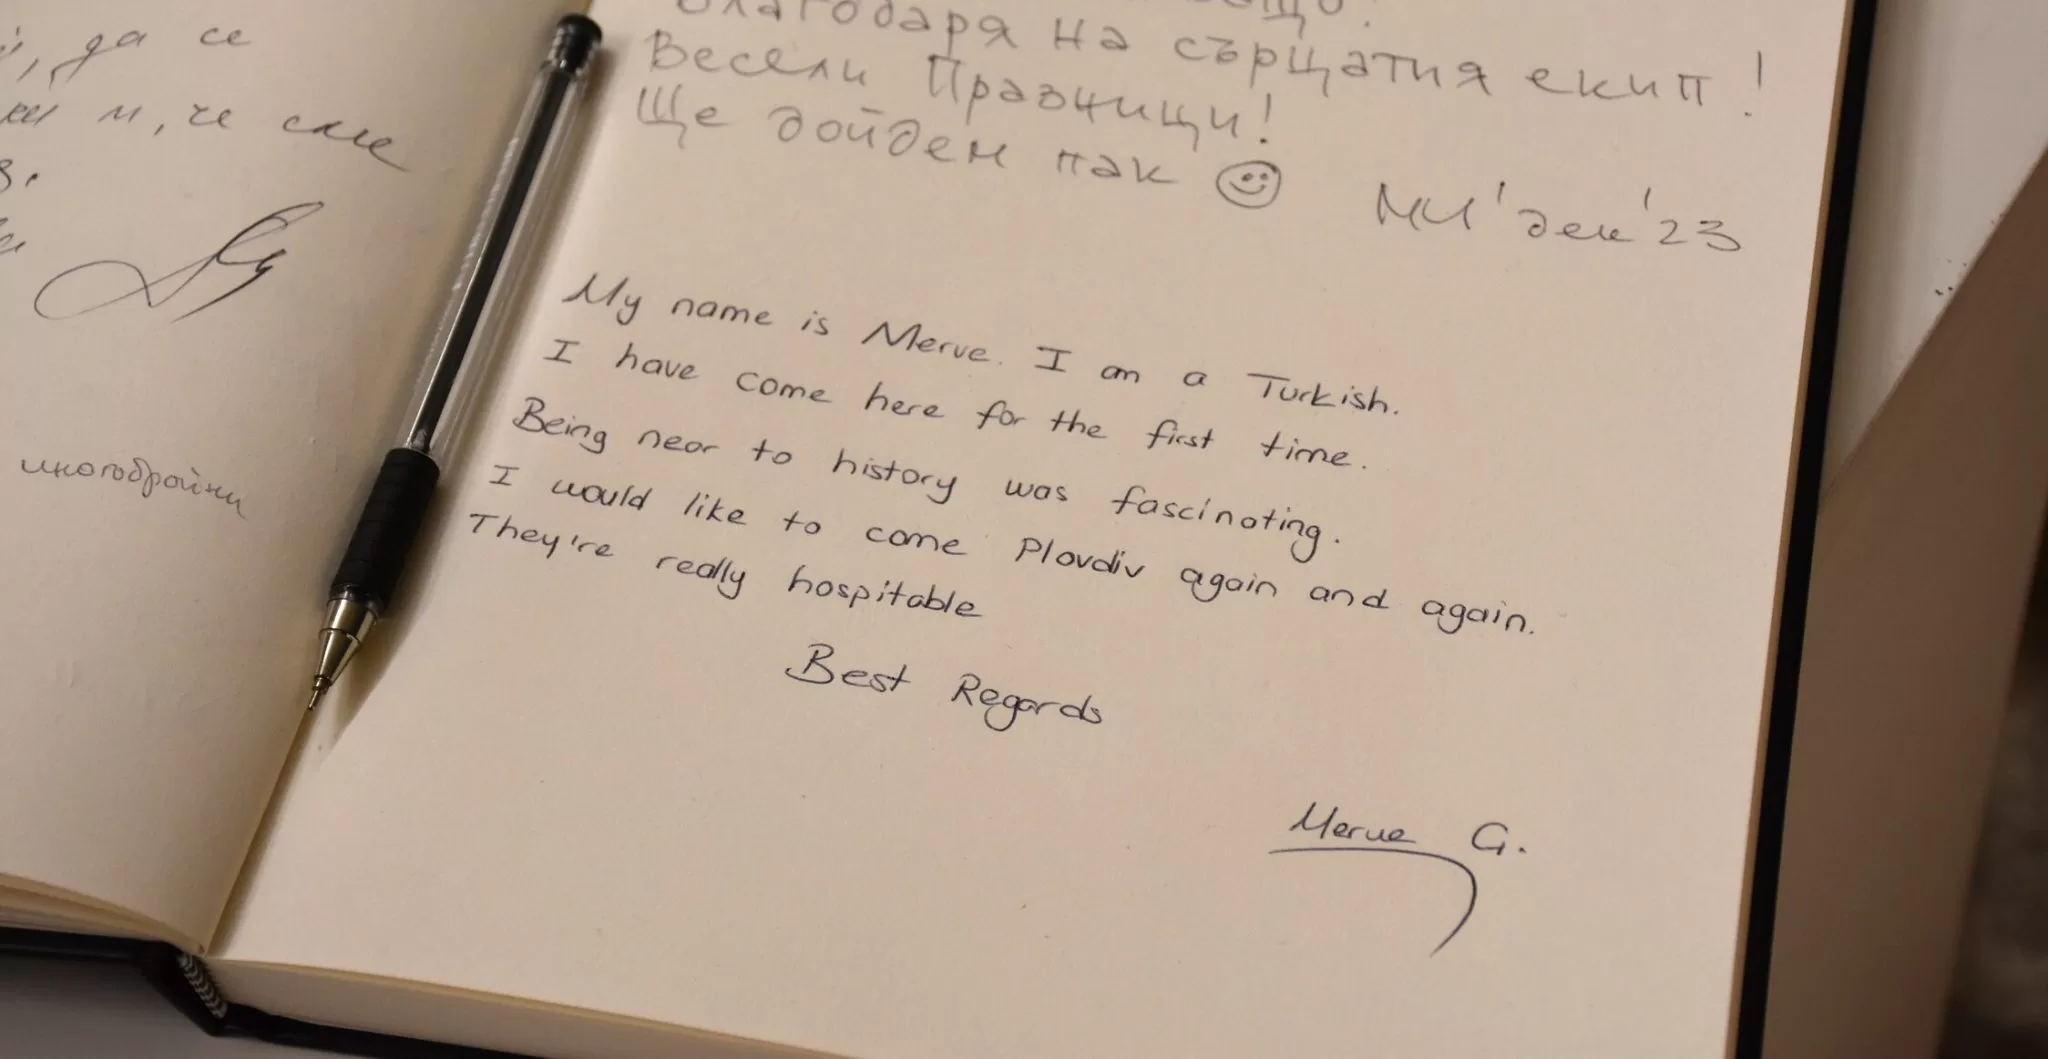 да се
м, че сме
многобройни
Благодаря на сърцатия екип!
Весели Празници!
Ще дойдем пак
МИ' дек '23
My name is Merve. I am a Turkish.
I have come here for the first time.
Being near to history was fascinating.
I would like to come Plovdiv again and again.
They're really hospitable
Best Regards
Merve G.